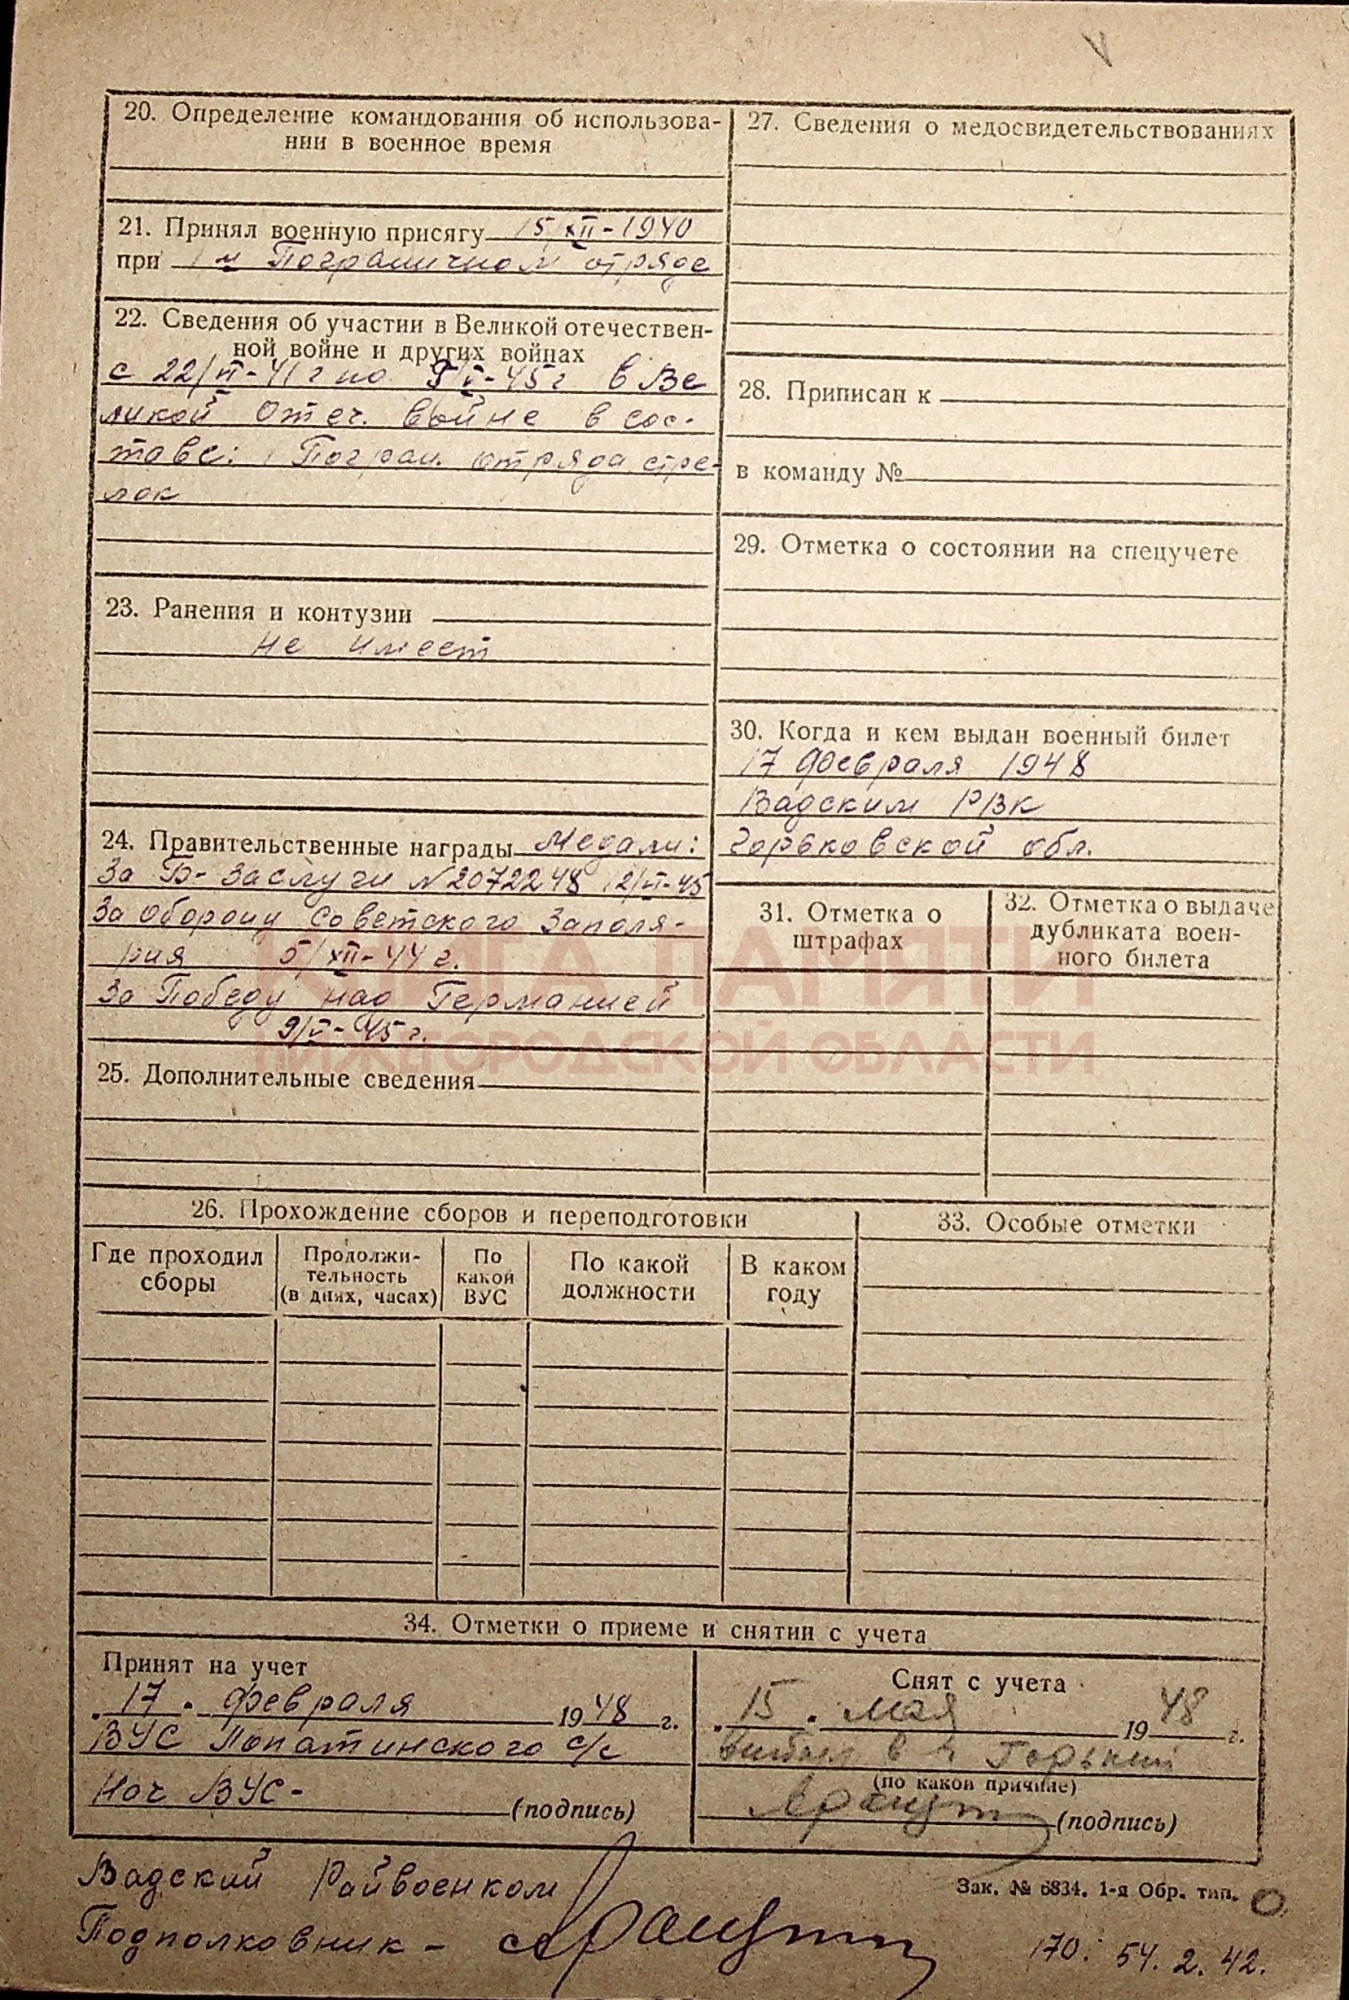 20. Определение командования об использова-
нии в военное время
21. Принял военную присягу 15/XII-1940
при 1м Пограничном отряде
22. Сведения об участии в Великой отечествен-
ной войне и других войнах
с 22/VI-41г по 9/V-45г в Ве
ликой Отеч. войне в сос-
таве: 1 Погран. отряда стре-
лок
23. Ранения и контузии
не имеет
24. Правительственные награды Медали:
За Б-Заслуги №2072248 12/VI-45
За оборону Советского Заполя-
рия 5/XII-44 г.
За Победу над Германией
9/V-45 г.
25. Дополнительные сведения
27. Сведения о медосвидетельствованиях
28. Приписан к
в команду №
29. Отметка о состоянии на спецучете
30. Когда и кем выдан военный билет
17 февраля 1948
Вадским РВК
Горьковской обл.
31. Отметка о
штрафах
32. Отметка о выдаче
дубликата воен-
ного билета
КНИГА ПАМЯТИ
НИЖЕГОРОДСКОЙ ОБЛАСТИ
26. Прохождение сборов и переподготовки
Где проходил
сборы
Продолжи-
тельность
(в днях, часах)
По
какой
ВУС
По какой
должности
В каком
году
33. Особые отметки
34. Отметки о приеме и снятии с учета
Принят на учет
"17" февраля 1948 г.
ВУС Лопатинского с/с
Нач ВУС-
(подпись)
Снят с учета
"15" мая 1948 г.
выбыл в г. Горький
(по какой причине)
(подпись)
Вадский Райвоенком
Подполковник -
Зак. № 6834. 1-я Обр. тип.
170. 54. 2. 42.